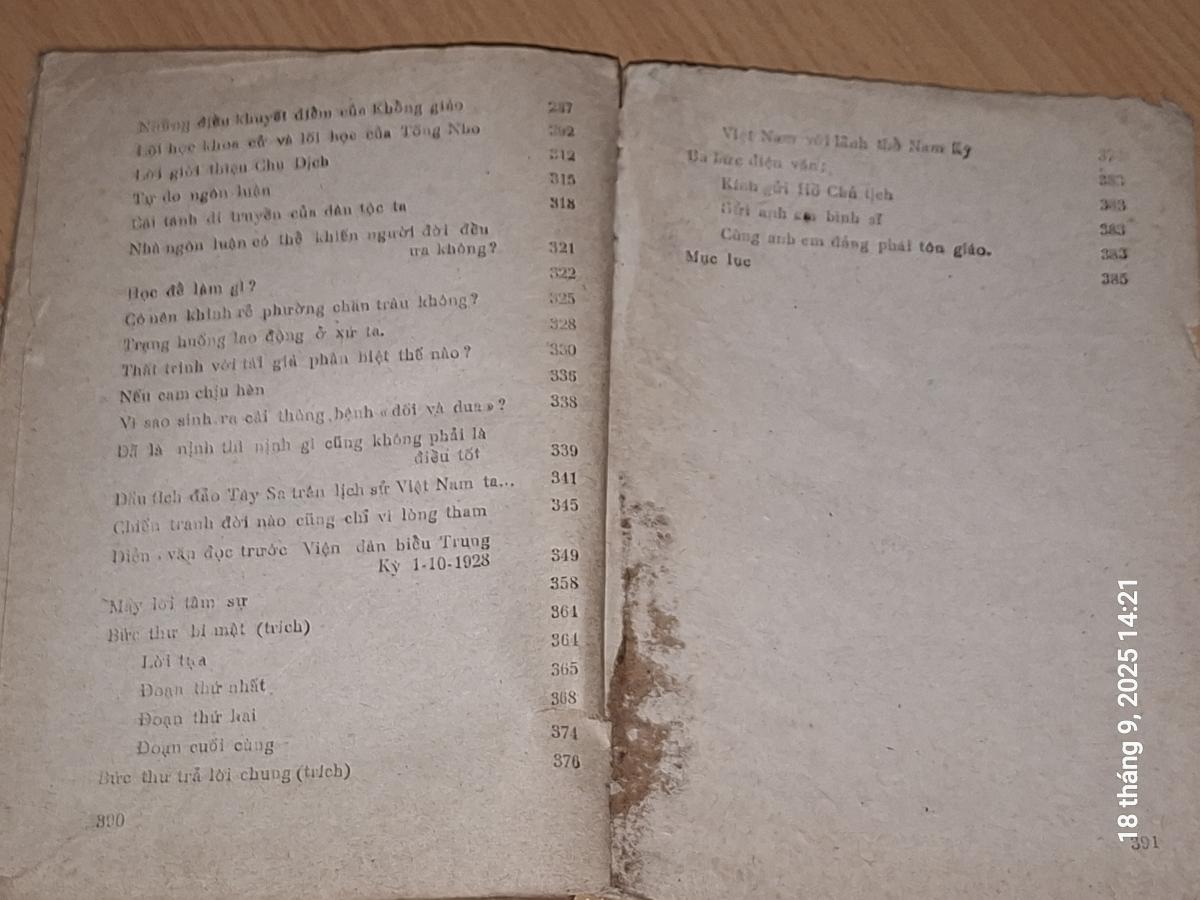 Những điều khuyết điểm của Khổng giáo 287
Lối học khoa cử và lối học của Tống Nho 302
Lời giới thiệu Chu Dịch 312
Tự do ngôn luận 315
Cái tánh di truyền của dân tộc ta 318
Nhà ngôn luận có thể khiến người đời đều
ưa không? 321
Học để làm gì? 322
Có nên khinh rẻ phường chăn trâu không? 325
Trạng huống lao động ở xứ ta. 328
Thất trinh với tái giá phân biệt thế nào? 330
Nếu cam chịu hèn 336
Vì sao sinh ra cái thùng bệnh «dối và dua»? 338
Đã là nịnh thì nịnh gì cũng không phải là
điều tốt 339
Dấu tích đảo Tây Sa trên lịch sử Việt Nam ta... 341
Chiến tranh đời nào cũng chỉ vì lòng tham 345
Diễn văn đọc trước Viện dân biểu Trung
Kỳ 1-10-1928 349
Mấy lời tâm sự 358
Bức thư bí mật (trích) 364
Lời tựa 364
Đoạn thứ nhất 365
Đoạn thứ hai 368
Đoạn cuối cùng 374
Bức thư trả lời chung (trích) 376
390
Việt Nam với lãnh thổ Nam Kỳ
Ba bức điện văn: 383
Kính gửi Hồ Chủ tịch 383
Gửi anh em binh sĩ 383
Cùng anh em đảng phái tôn giáo. 383
Mục lục 385
391
18 tháng 9, 2025 14:21